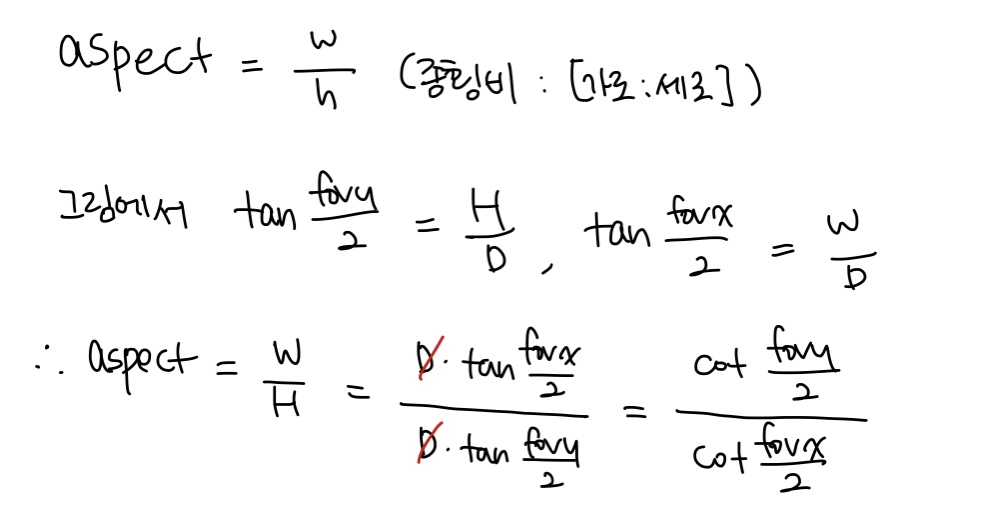 aspect = w/h (종횡비 : [가로:세로])
그림에서 tan fovy/2 = H/D, tan fovx/2 = W/D
∴ aspect = W/H = (D · tan fovx/2)/(D · tan fovy/2) = (cot fovy/2)/(cot fovx/2)